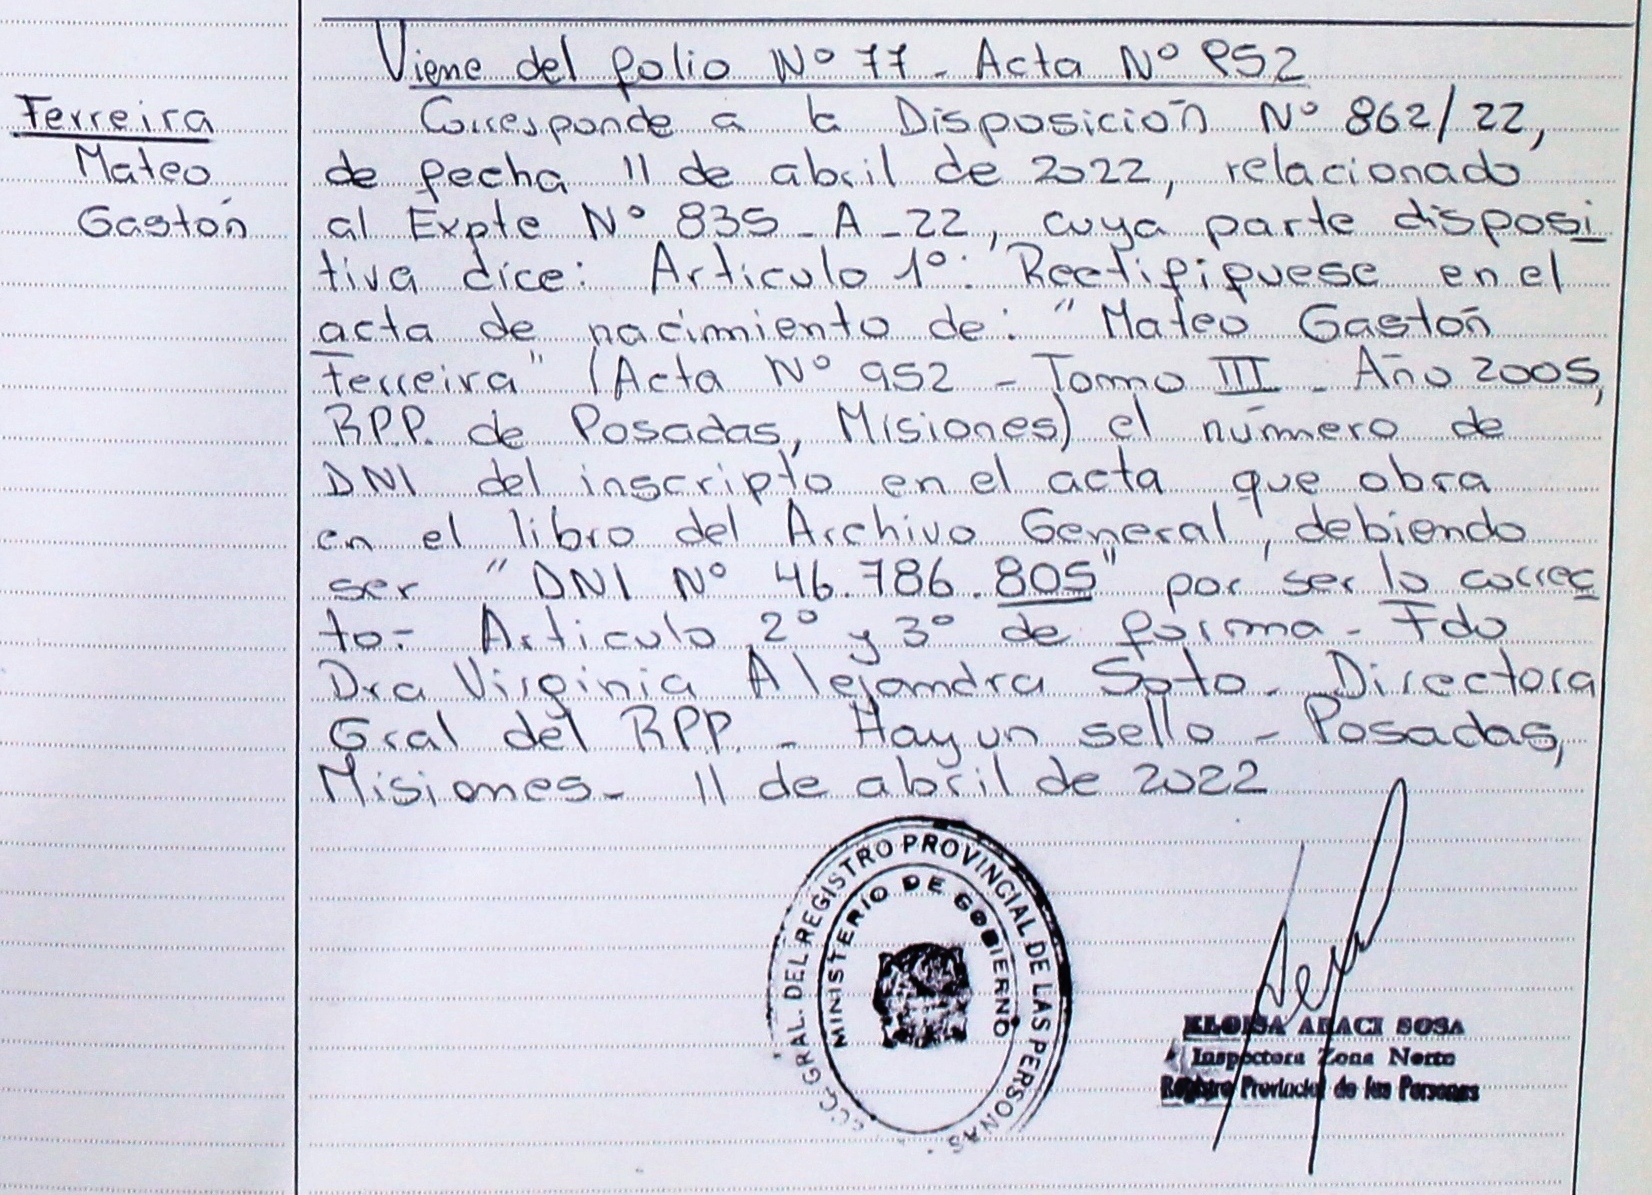 Viene del folio Nº 77 - Acta Nº 952
Ferreira
Mateo
Gastón
Corresponde a la Disposición Nº 862/22,
de fecha 11 de abril de 2022, relacionado
al Expte Nº 835 - A - 22, cuya parte disposi
tiva dice: Articulo 1º: Rectifiquese en el
acta de nacimiento de: "Mateo Gastón
Ferreira" (Acta Nº 952 - Tomo III - Año 2005,
R.P.P. de Posadas, Misiones) el número de
DNI del inscripto en el acta que obra
en el libro del Archivo General, debiendo
ser "DNI Nº 46.786.805" por ser lo correc
to- Articulo 2º y 3º de forma - Fdo
Dra Virginia Alejandra Soto - Directora
Gral del RPP. - Hay un sello - Posadas,
Misiones - 11 de abril de 2022
GRAL. DEL REGISTRO PROVINCIAL DE LAS PERSONAS
MINISTERIO DE GOBIERNO
ELOISA ARACI SOSA
Inspectora Zona Norte
Registro Provincial de las Personas